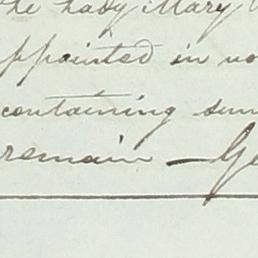 he Lady Mary
ppointed in
containing
remain — Ge